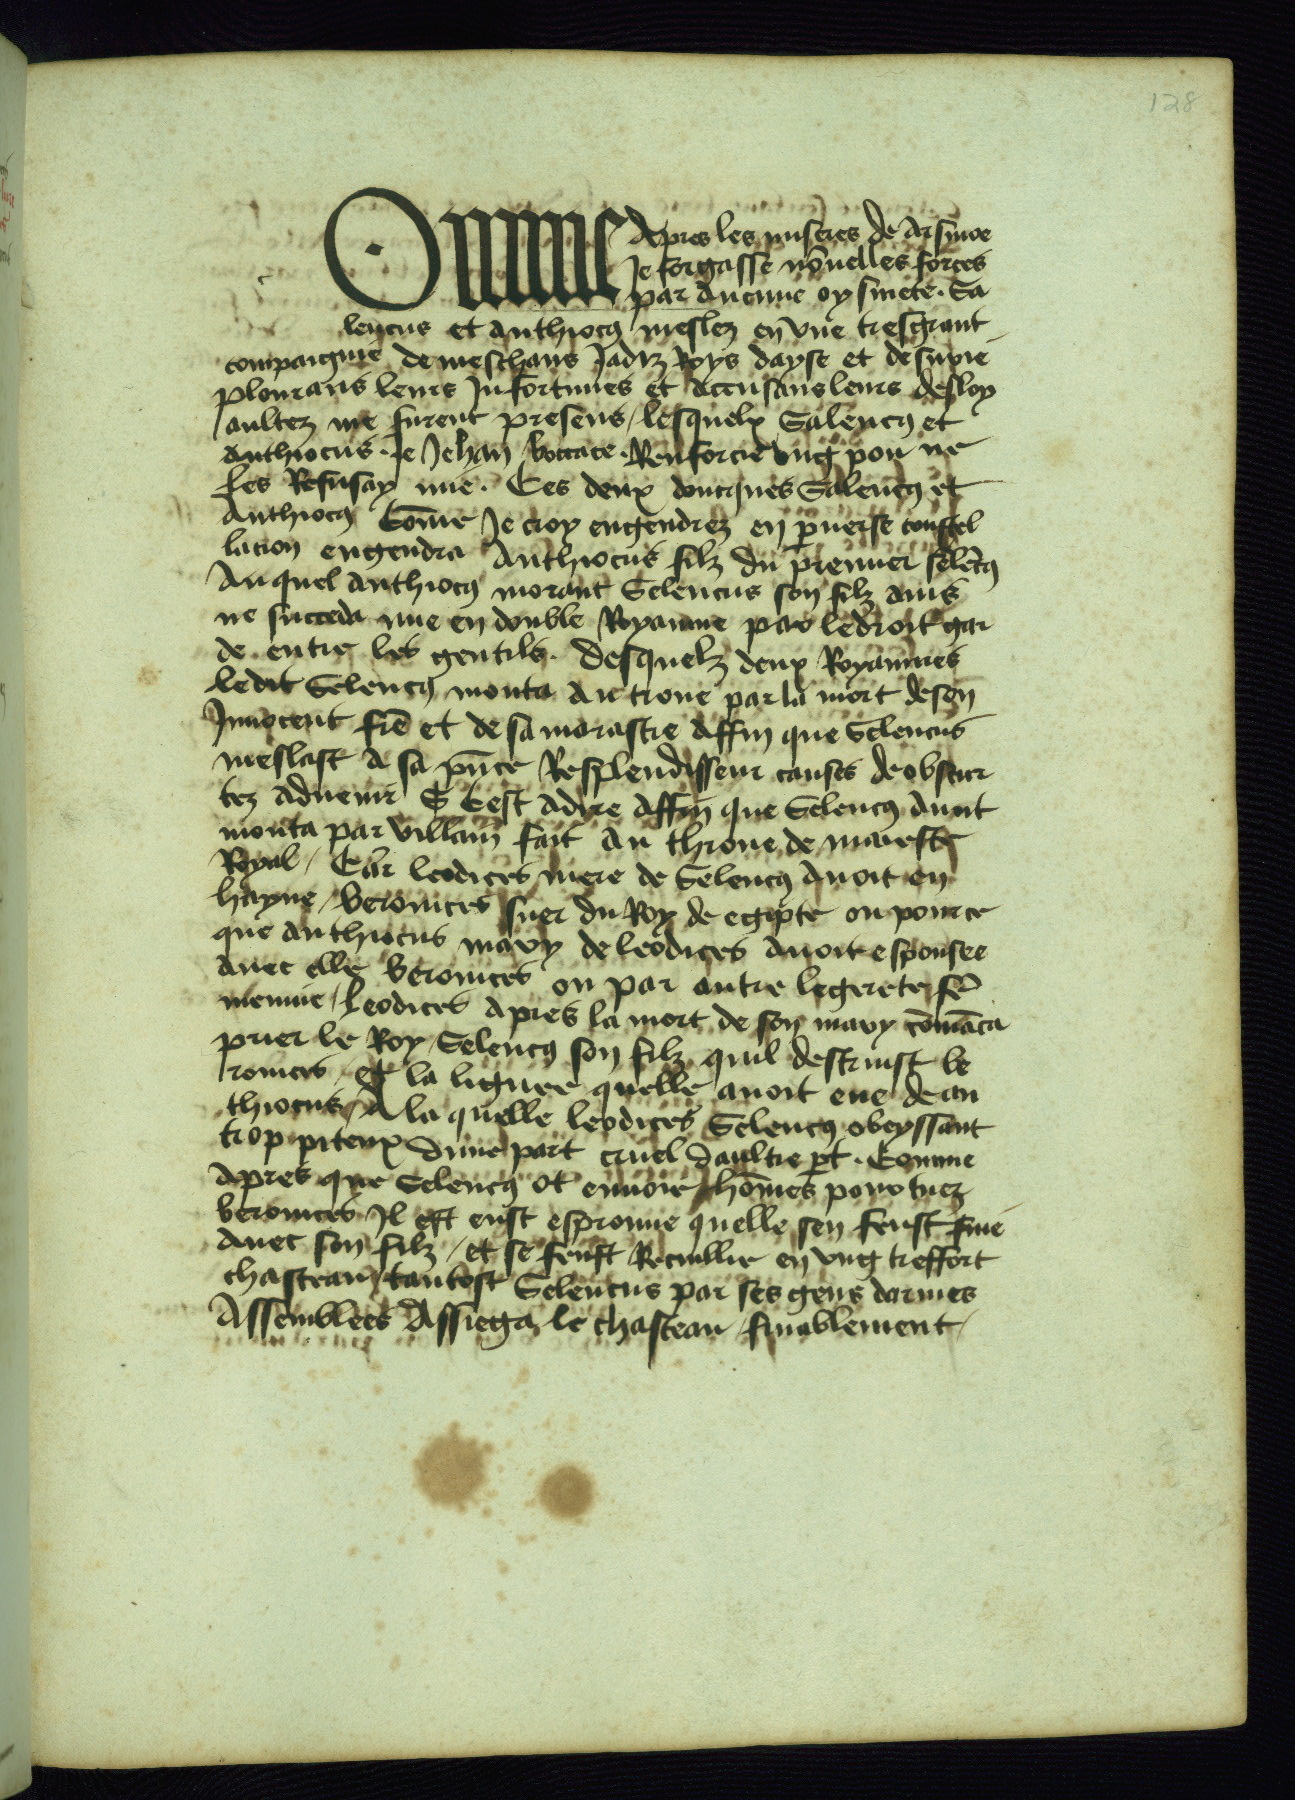 128
Omme apres les miseres de Arsinoe
Je forgasse nōuelles forces
par aucune oysiuete. Sa
leucus et anthiocꝯ meslez en vne tresgrant
compaignie de meschans Jadiz Roys dayse et de surie
plourans leurs Infortunes et accusans leurs desloy
aultez me furent presens / lesquelx Saleucꝯ et
anthiocus. Je Jehan boccace. Renforcie vng pou ne
les Refusay mie. Ces deux doncques Saleucꝯ et
Anthiocꝯ Com̄e Je croy engendrez en ꝑuerse constel
lacion engendra Anthiocus filz du premier seleucꝯ
Auquel anthiocꝯ morant Seleucus son filz ains
ne succeda mie en double Royaume par le droit gar
de entre les gentilz. Desquelz deux Royaumes
ledit Seleucꝯ monta au trone par la mort de son
Innocent fre et de sa marastre affin que Seleucus
meslast a sa pn̄ce Resplendisseur causes de obscur
tez aduenir Cest adire affin que Seleucꝯ auoit
monta par villain fait au throne de maieste
Royal / Car leodices mere de Seleucꝯ auoit en
hayne / veronices suer du Roy de egipte ou pource
que anthiocus mary de leodices auoit espousee
auec elle veronices ou par autre legerete fe
menine / leodices apres la mort de son mary cōmāca
prier le Roy / Seleucꝯ son filz quil destruist be
ronices / et la lignee quelle auoit eue de an
thiocus / A la quelle leodices Seleucꝯ obeyssant
trop piteux dune part cruel daultre ꝑt. Comme
apres que Seleucꝯ ot enuoie hōmes pour tuez
veronices Il eust esprouue quelle sen feust fuie
auec son filz / et se feust Recuillie en vng tresfort
chasteau / tantost Seleucus par ses gens darmes
Assemblees Assiega le chasteau / finablement /